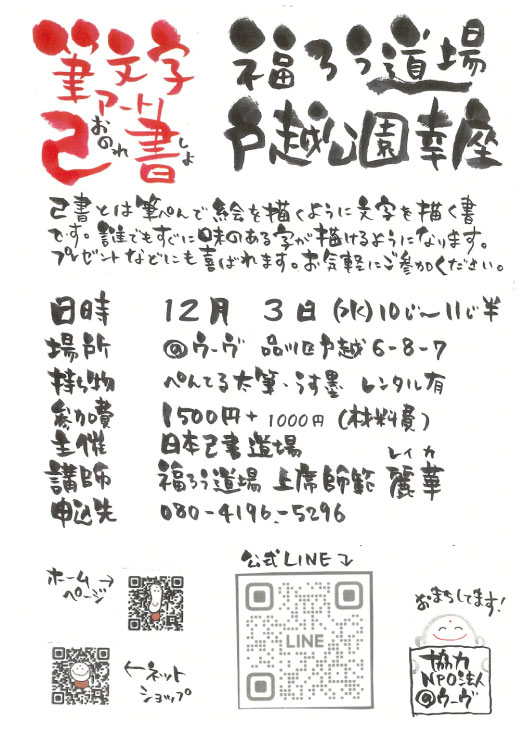 筆文字
アート！
己書
おのれ
しょ
福ろう道場
戸越公園幸座
己書とは筆ぺんで絵を描くように文字を描く書
です。誰でもすぐに味のある字が描けるようになります。
プレゼントなどにも喜ばれます。お気軽にご参加ください。
日時 12月 3日(水)10じ〜11じ半
場所 @ウーヴ 品川区戸越6-8-7
持ち物 ぺんてる太筆・うす墨 レンタル有
参加費 1500円+1000円(材料費)
主催 日本己書道場
レイカ
講師 福ろう道場 上席師範 麗華
申込先 080-4196-5296
公式LINE
ホーム
ページ
LINE
ネット
ショップ
おまちしてます!
協力
NPO法人
@ウーヴ